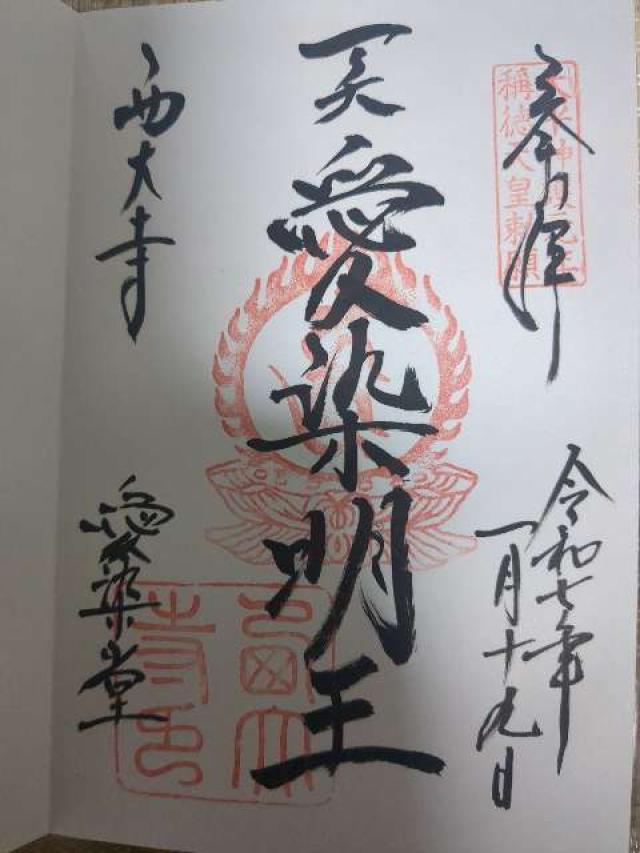 奉拝
稱徳天皇勅願
令和七年
一月十九日
愛染明王
西大寺
愛染堂
西大寺印